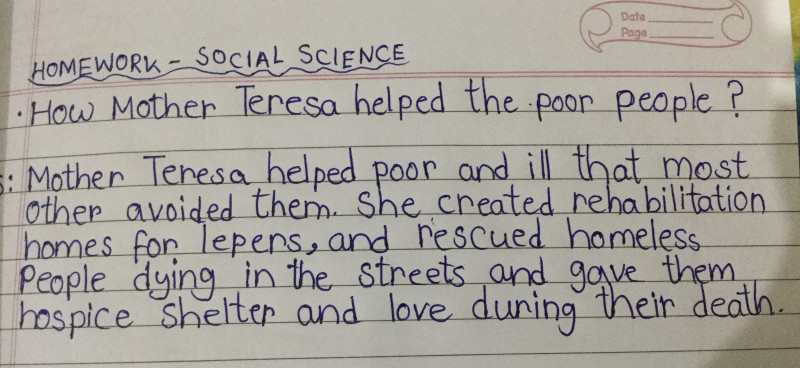 Date
Page
HOMEWORK - SOCIAL SCIENCE
· How Mother Teresa helped the poor people ?
s: Mother Teresa helped poor and ill that most
other avoided them. She created rehabilitation
homes for lepers, and rescued homeless
People dying in the streets and gave them
hospice shelter and love during their death.